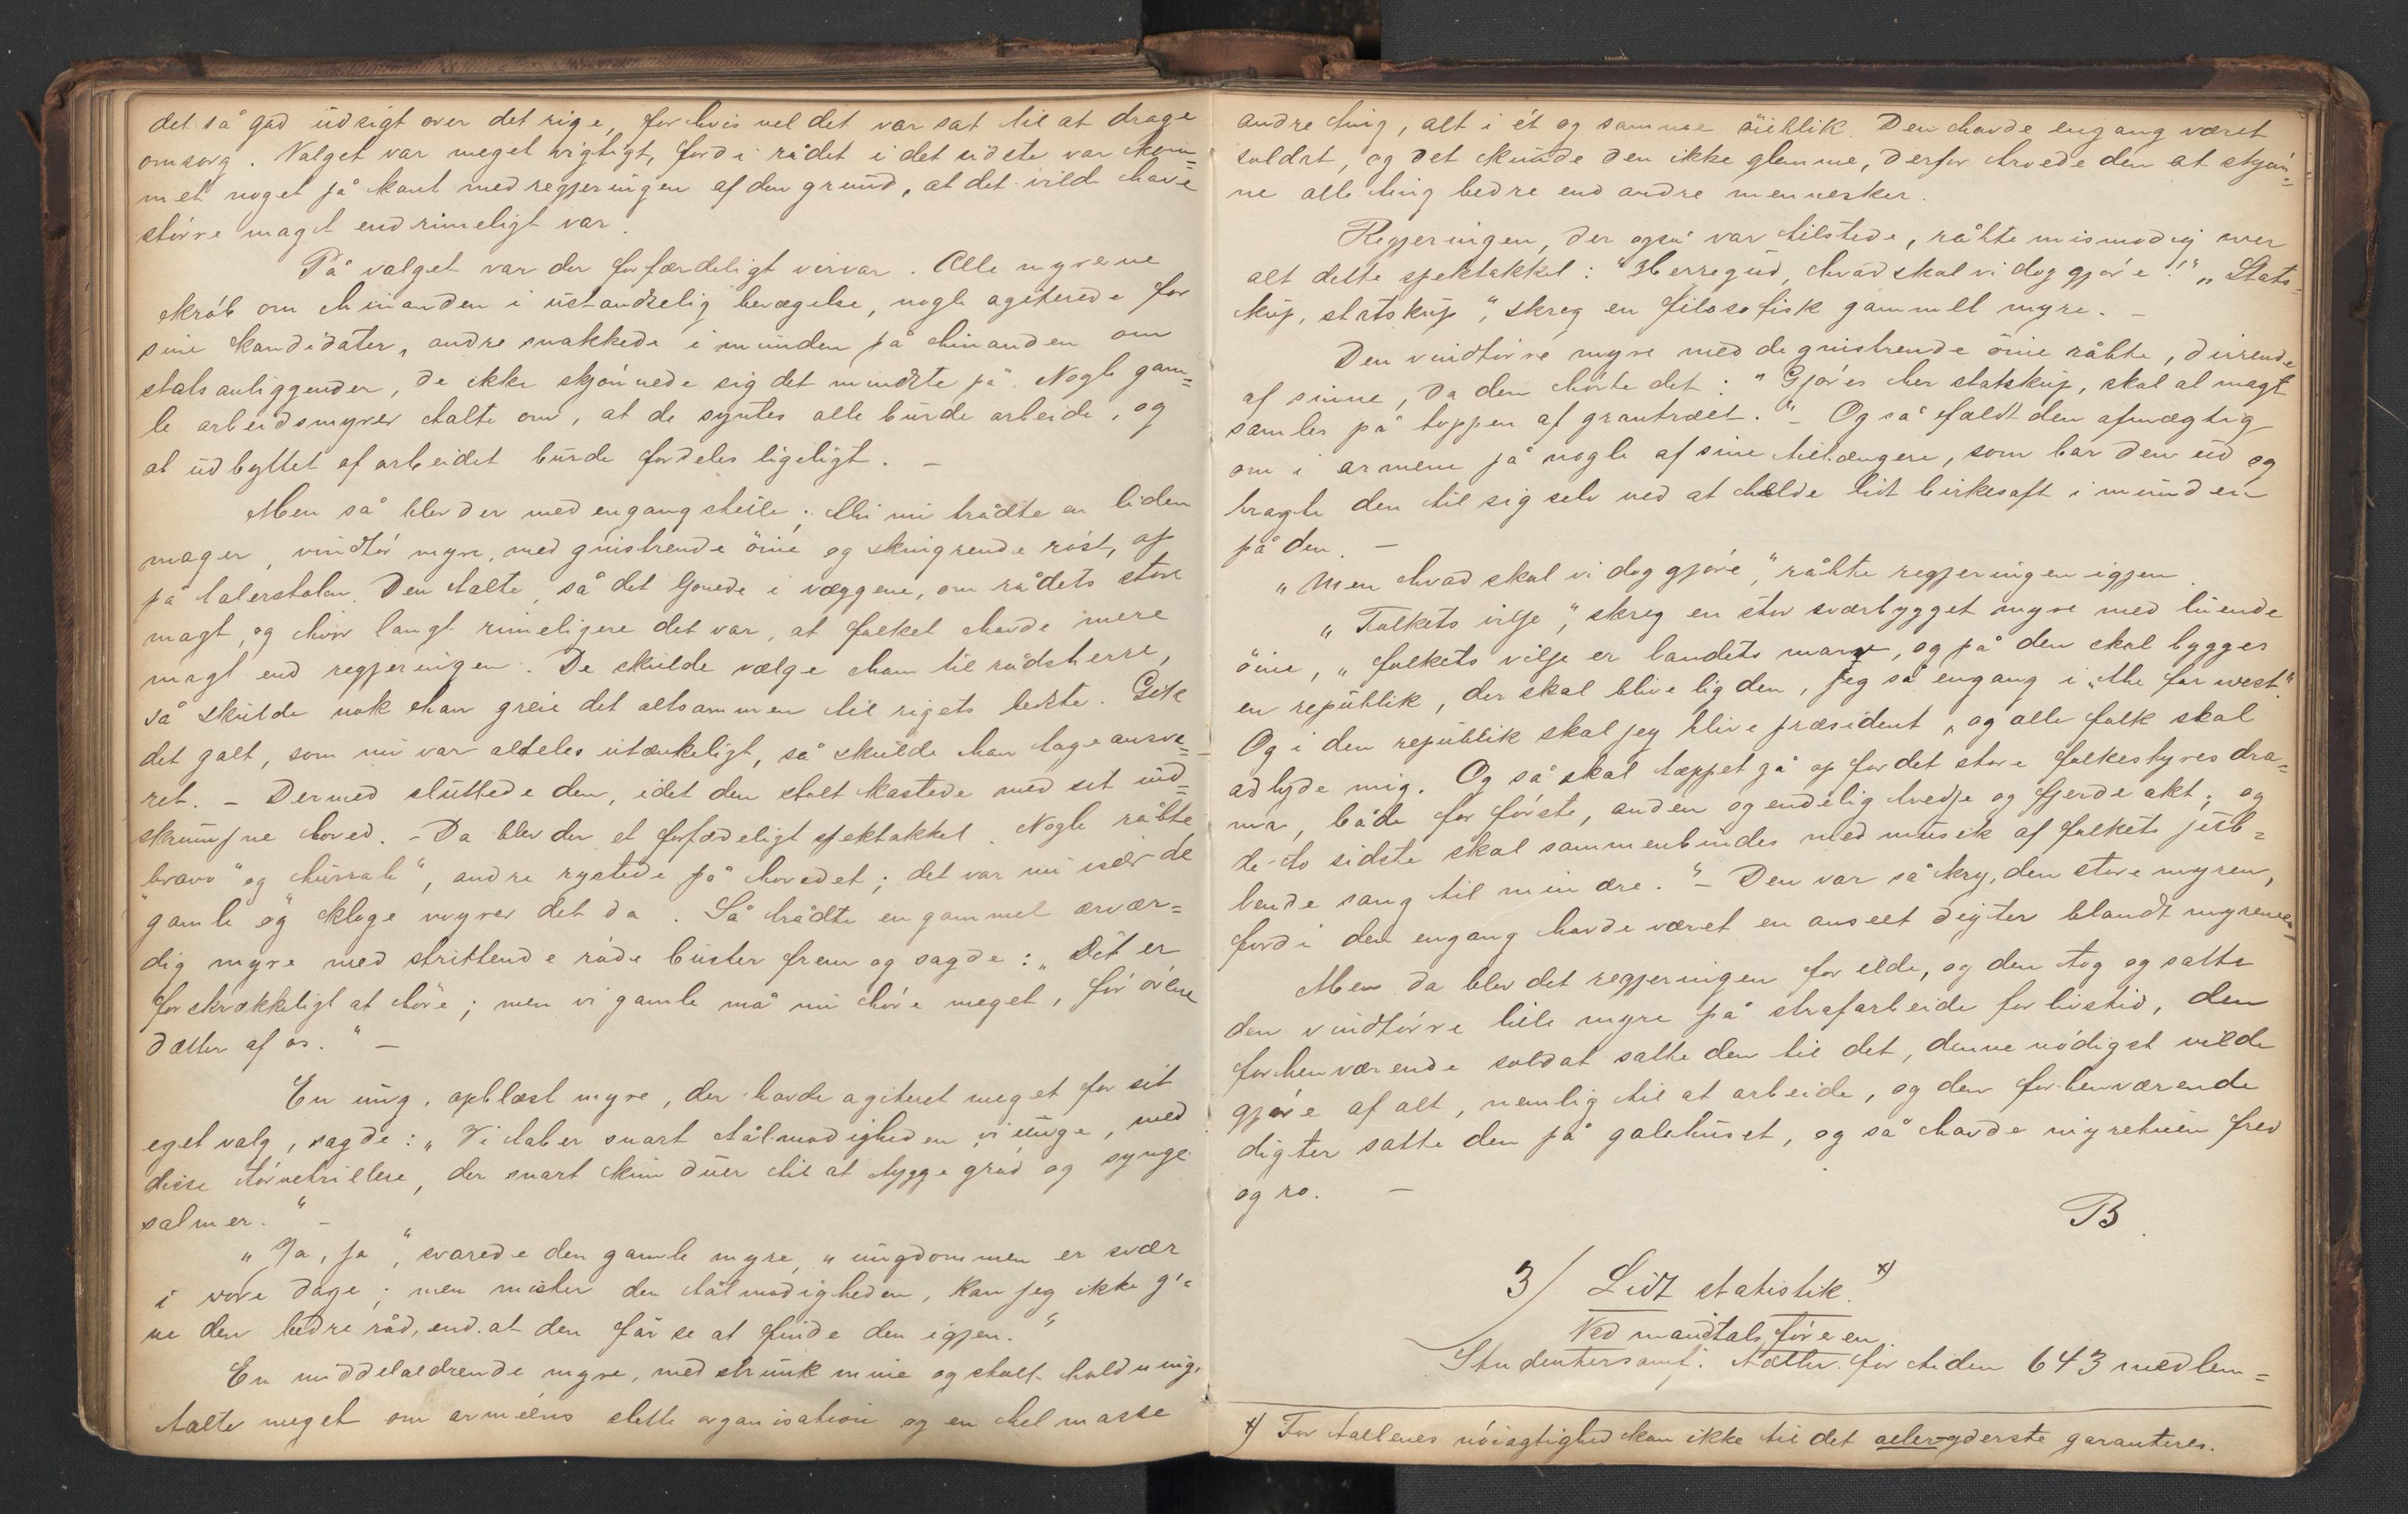 det så god udsigt over det rige, for hvis vel det var sat til at drage
omsorg. Valget var meget vigtigt, fordi rådet i det sidste var kom=
met noget på kant med regjeringen af den grund, at det vilde have
större magt end rimeligt var.
På valget var der forfærdeligt virvar. Alle myrene
kröb om hinanden i ustandselig bevægelse, nogle agiterede for
sine kandidater, andre snakkede i munden på hinanden om
statsanliggender, de ikke skjönnede sig det mindste på. Nogle gam=
le arbeidsmyrer talte om, at de syntes alle burde arbeide, og
at udbyttet af arbeidet burde fordeles ligeligt. –
Men så blev der med engang stille; thi nu trådte en liden
mager, vindtör myre, med gnistrende öine og skingrende röst, op
på talerstolen. Den talte, så det ljomede i væggene, om rådets store
magt, og hvor langt rimeligere det var, at folket havde mere
magt end regjeringen. De skulde vælge ham til rådsherre,
så skulde nok han greie det altsammen til rigets bedste. Gik
det galt, som nu var aldeles utænkeligt, så skulde han tage ansva=
ret. – Dermed sluttede den, idet den stolt kastede med sit ind=
skrumpne hoved. – Da blev der et forfædeligt spektakkel. Nogle råbte
"bravo" og "hurrah", andre rystede på hovedet; det var nu især de
gamle og kloge myrer det da. Så trådte en gammel ærvær=
dig myre med strittende röde buster frem og sagde: „Det er
forskrækkeligt at höre; men vi gamle må nu höre meget, för örene
detter af os." –
En ung, opblæst myre, der havde agiteret meget for sit
eget valg, sagde: „Vi taber snart tålmodigheden, vi unge, med
disse törvetrillere, der snart kun duer til at tygge gröd og synge
salmer." –
„Ja, ja", svarede den gamle myre, „ungdommen er svær
i vore dage; men mister den tålmodigheden, kan jeg ikke gi=
ve den bedre råd, end at den får se at finde den igjen."
En middelaldrende myre, med strunk mine og stolt holdning,
talte meget om arméens slette organisation og en hel masse
andre ting, alt i ét og samme öieblik. Den havde engang været
soldat, og det kunde den ikke glemme, derfor troede den at skjön=
ne alle ting bedre end andre mennesker.
Regjeringen, der også var tilstede, råbte mismodig over
alt dette spektakkel: "Herregud, hvad skal vi dog gjöre!" „Stats=
kup, statskup", skreg en filosofisk gammel myre. –
Den vindtörre myre med de gnistrende öine råbte, dirrende
af sinne, da den hörte det: "Gjöres her statskup, skal al magt
samles på toppen af grantræet." – Og så faldt den afmægtig
om i armene på nogle af sine tilhængere, som bar den ud og
bragte den til sig selv ved at helde lidt birkesaft i munden
på den. –
„Men hvad skal vi dog gjöre", råbte regjeringen igjen.
„Folkets vilje", skreg en stor sværbygget myre med luende
öine, „folkets vilje er landets marv, og på den skal bygges
en republik, der skal blive lig den, jeg så engang i „the far west".
Og i den republik skal jeg blive præsident, og alle folk skal
adlyde mig. Og så skal tæppet gå op for det store folkestyres dra=
ma, både for förste, anden og endelig tredje og fjerde akt; og
de to sidste skal sammenbindes med musik af folkets jub=
lende sang til min ære." – Den var så kry, den store myren,
fordi den engang havde været en anseet digter blandt myrene.
Men da blev det regjeringen for ilde, og den tog og satte
den vindtörre lille myre på strafarbeide for livstid, den
forhenværende soldat satte den til det, denne nödigst vilde
gjöre af alt, nemlig til at arbeide, og den forhenværende
digter satte den på galehuset, og så havde myretuen fred
og ro. –
B.
3/ Lidt statistik. *)
Ved mandtals föreren.
Studentersamf. tæller for tiden 643 medlem=
*) For tallenes nöiagtighed kan ikke til det aller-yderste garanteres.